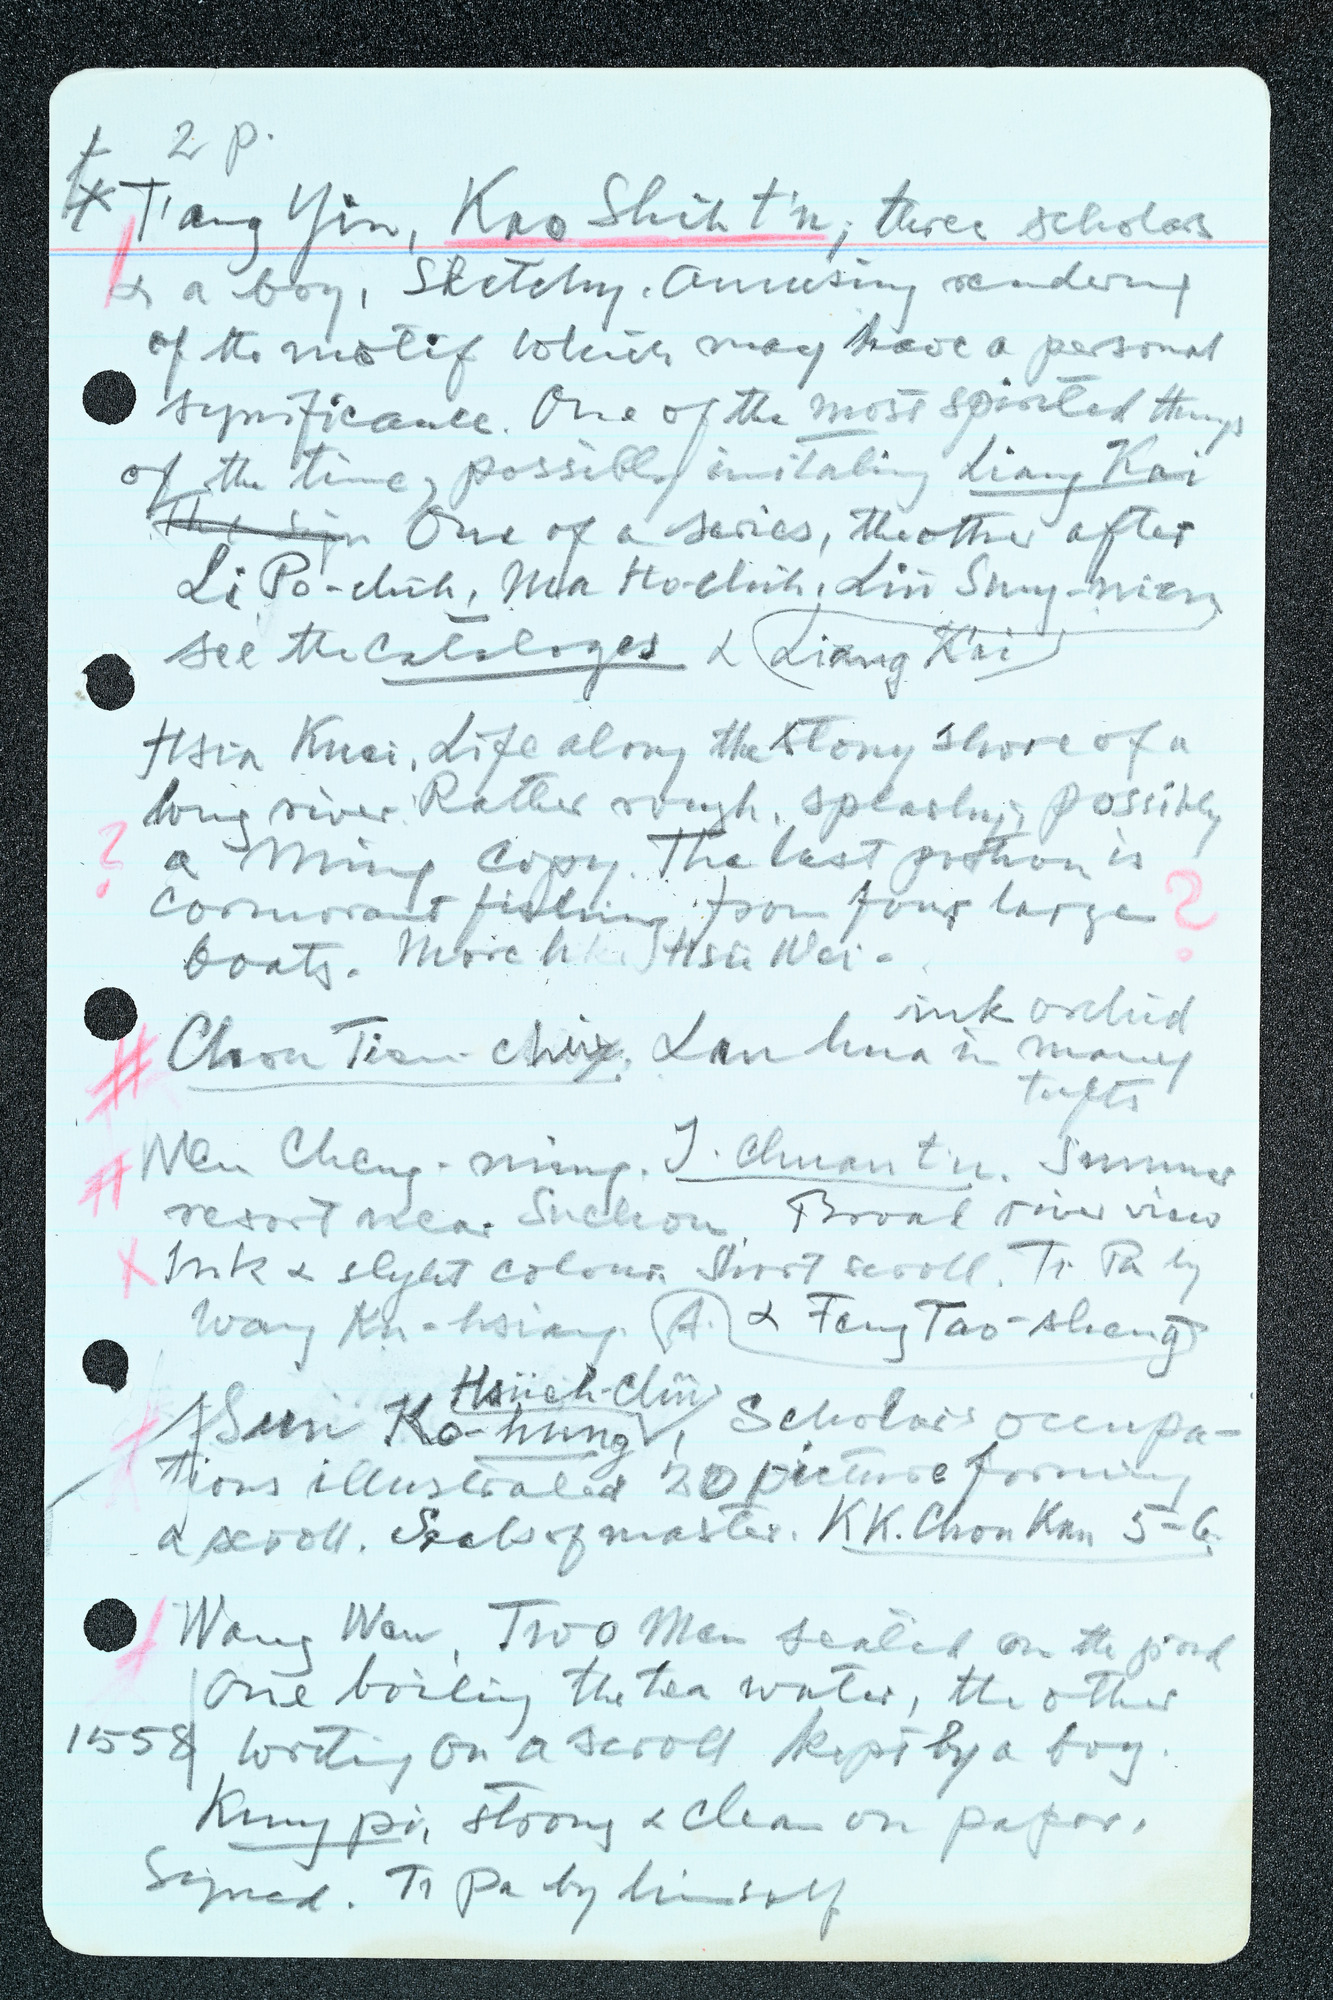 2 p.
T'ang Yin, Kao Shih t'u; three scholars
& a boy, Sketchy. Amusing rendering
of the motif which may have a personal
significance. One of the most spirited things
of the time, possibly imitating Liang Kai
One of a series, the other after
Li Po-chih, Ma Ho-chih, Liu Sung-nien,
see the cataloges & Liang Kai
Hsia Kuei, Life along the stony shore of a
long river. Rather rough, splashy, possibly
? a Ming copy. The last portion is
cormorant fishing from four large ?
boats. More like Hsü Wei.
ink orchid
Chou Tien-chiu, Lan hua in many
tufts
Wen Cheng-ming. I. chuan t'u. Summer
resort near Suchou Broad river view
Ink & slight colour. Short scroll. Ti Pa by
Wang Ku-hsiang. A. & Feng Tao-sheng
Hsüeh-chü
Sun Ko-hung, Scholars' occupa-
tions illustrated 20 picture forming
a scroll. Seals of master. KK. Chou Kan 5-6.
Wang Wen, Two Men seated on the ground
One boiling the tea water, the other
1558 writing on a scroll kept by a boy.
Kung pi, strong & clean on paper.
Signed. Ti Pa by himself